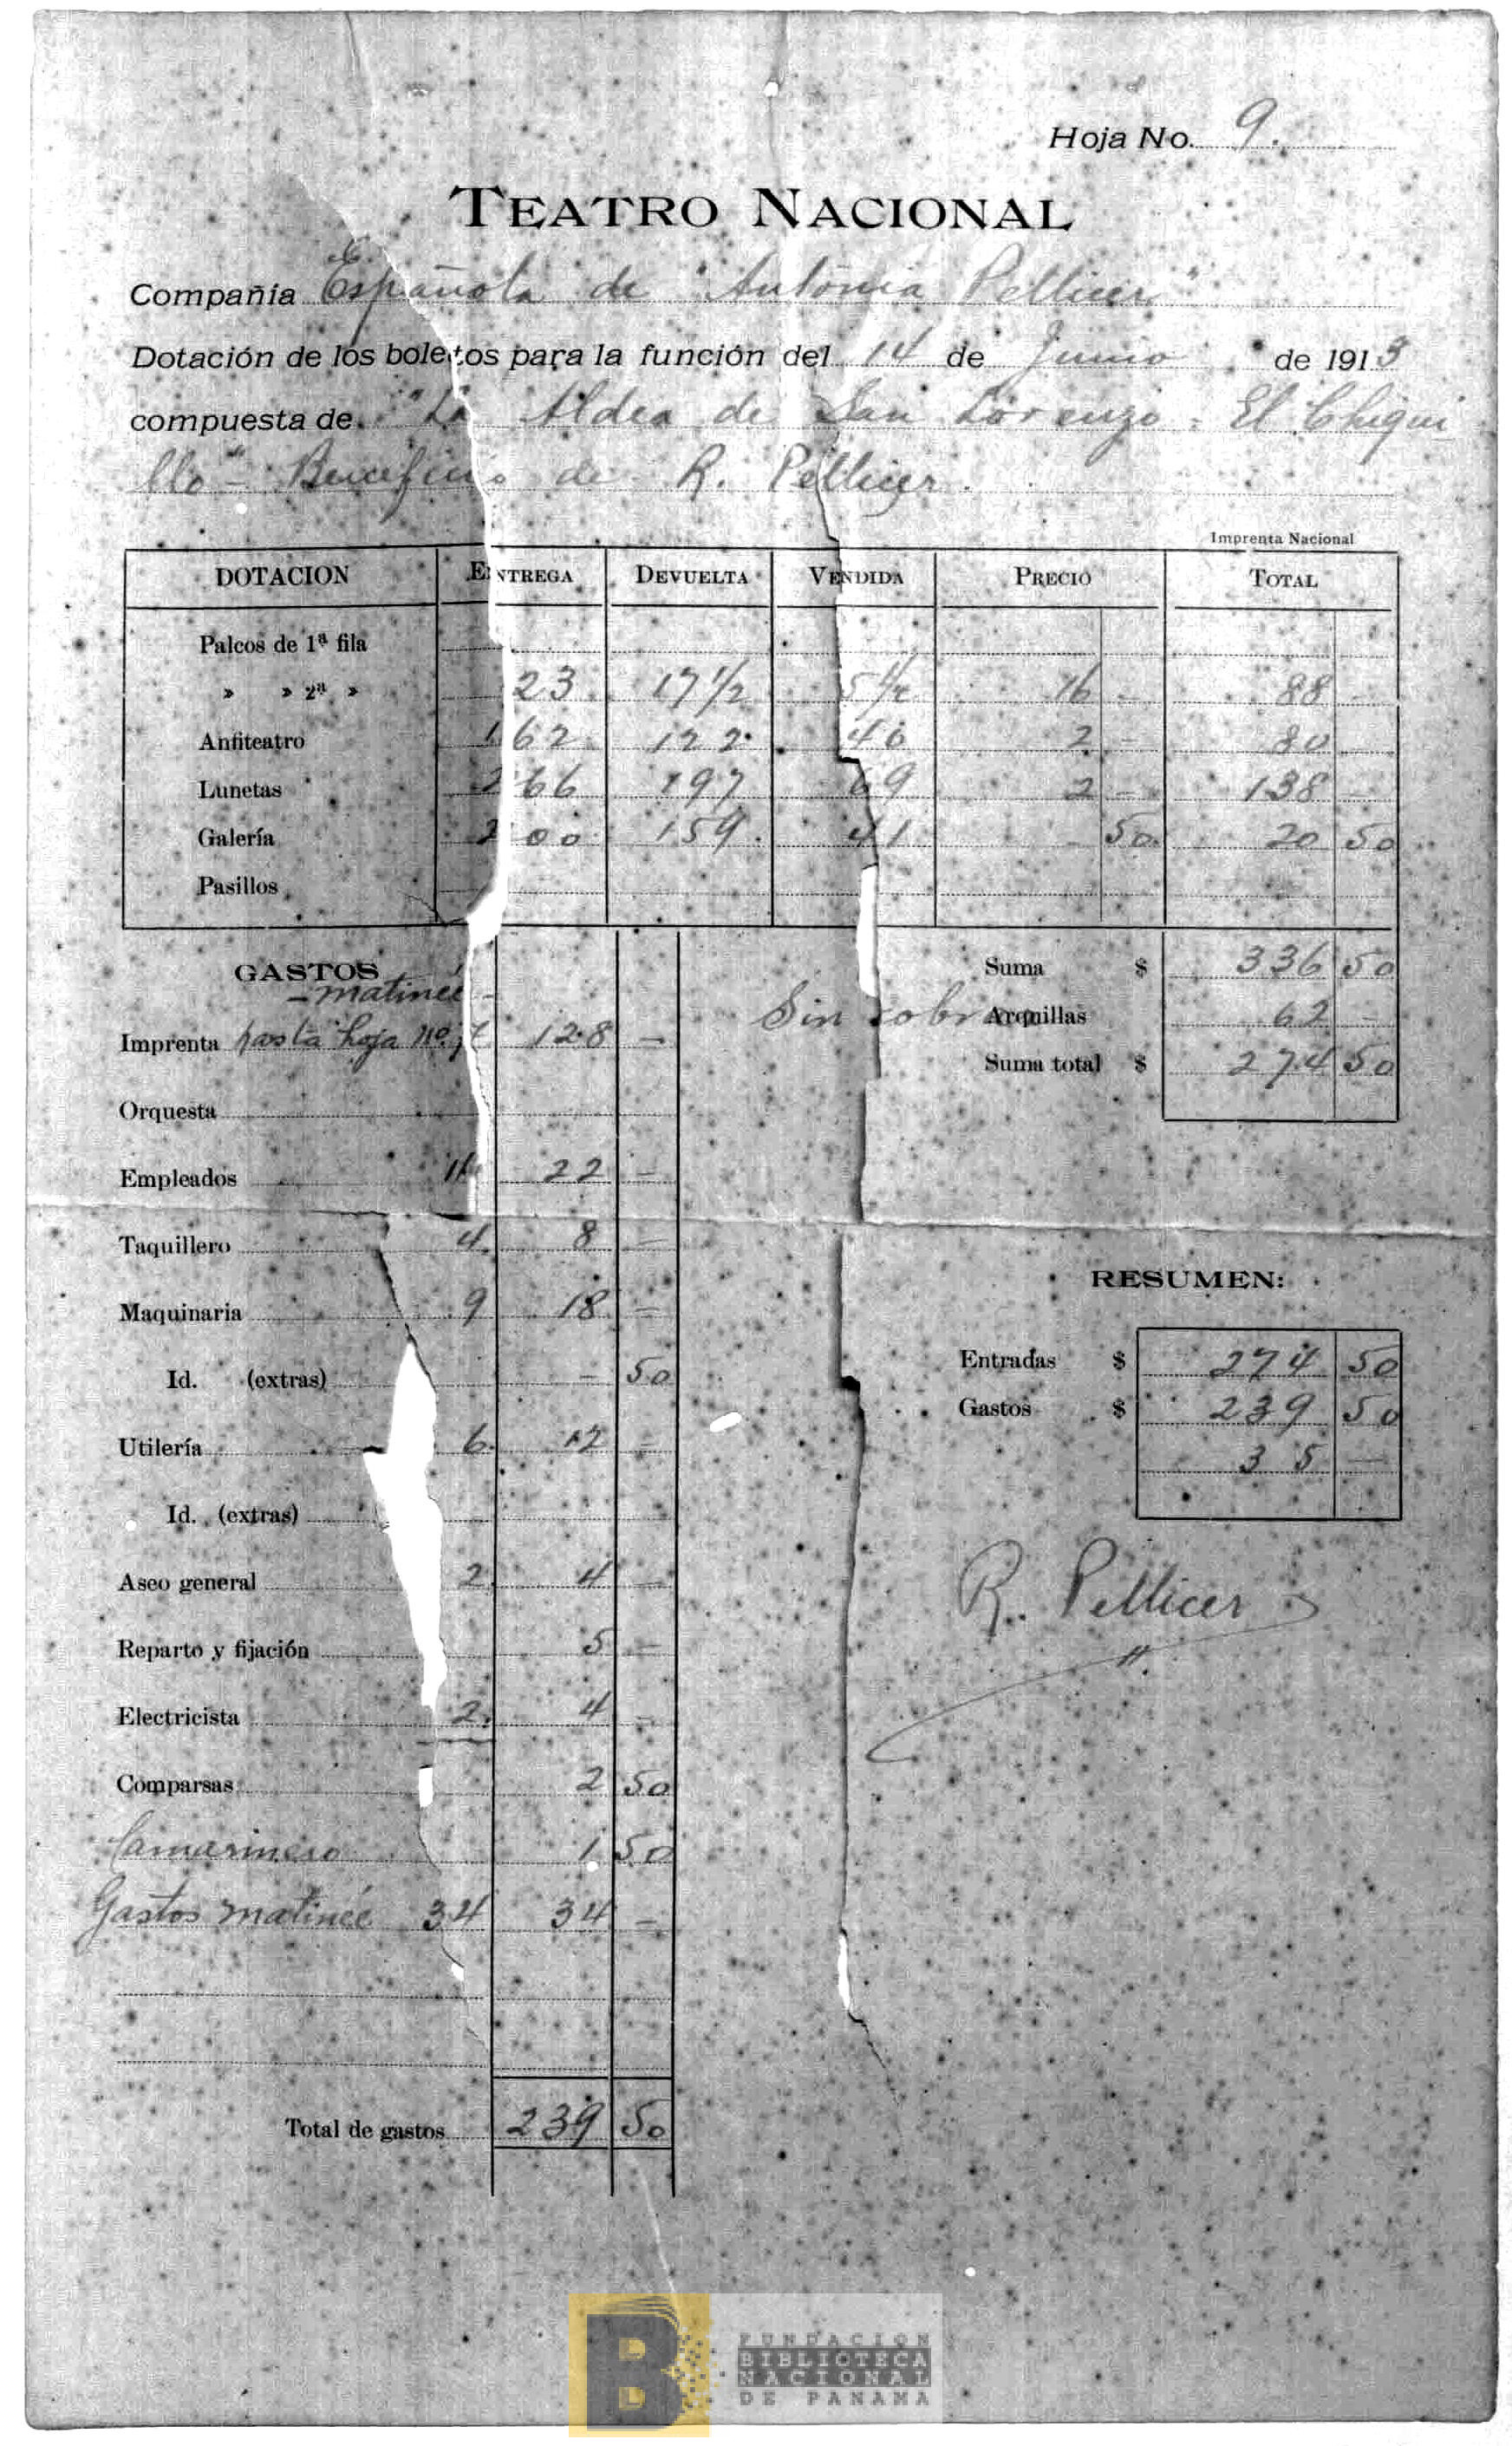 Hoja No. 9.
TEATRO NACIONAL
Compañía Española de "Antonia Pellicer"
Dotación de los boletos para la función del 14 de Junio de 1913
compuesta de "La Aldea de San Lorenzo - El Chiqui
llo" - Beneficio de R. Pellicer.
Imprenta Nacional
DOTACION ENTREGA DEVUELTA VENDIDA PRECIO TOTAL
Palcos de 1ª fila
» » 2ª » 23 17 1/2 5 1/2 16 - 88 -
Anfiteatro 162 122 40 2 - 80 -
Lunetas 266 197 69 2 - 138 -
Galería 200 159 41 - 50 20 50
Pasillos
GASTOS
- matineé -
Imprenta hasta hoja no. 7 128 -
Orquesta
Empleados 11 22 -
Taquillero 4. 8 -
Maquinaria 9 18 -
Id. (extras) - 50
Utilería 6. 12 -
Id. (extras)
Aseo general 2. 4 -
Reparto y fijación 5 -
Electricista 2. 4 -
Comparsas 2 50
Camarinero 1 50
Gastos matineé 34 34 -
Total de gastos 239 50
Suma $ 336 50
Sin cobrar Arquillas 62 -
Suma total $ 274 50
RESUMEN:
Entradas $ 274 50
Gastos $ 239 50
35 -
R. Pellicer
FUNDACION
BIBLIOTECA
NACIONAL
DE PANAMA